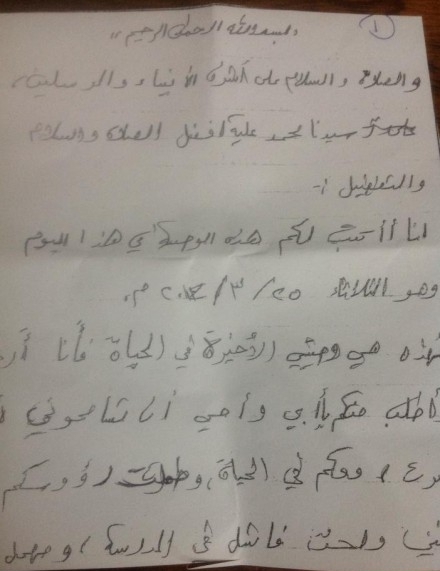 ١
بسم الله الرحمن الرحيم ،،
والصلاة والسلام على أشرف الأنبياء والمرسلين
سيدنا محمد علية افضل الصلاة والسلام
والتفظيل :-
انا أكتب لكم هذه الوصية في هذا اليوم
وهو الثلاثاء ٢٥ / ٣ / ٢٠١٤ م.
فهذه هي وصيتي الأخيرة في الحياة فأنا
وأطلب منكم يأبي وأمي أن تسامحوني
معكم في الحياة ، رؤوسكم
ولدت فاشل في المدرسة ، ومهمل